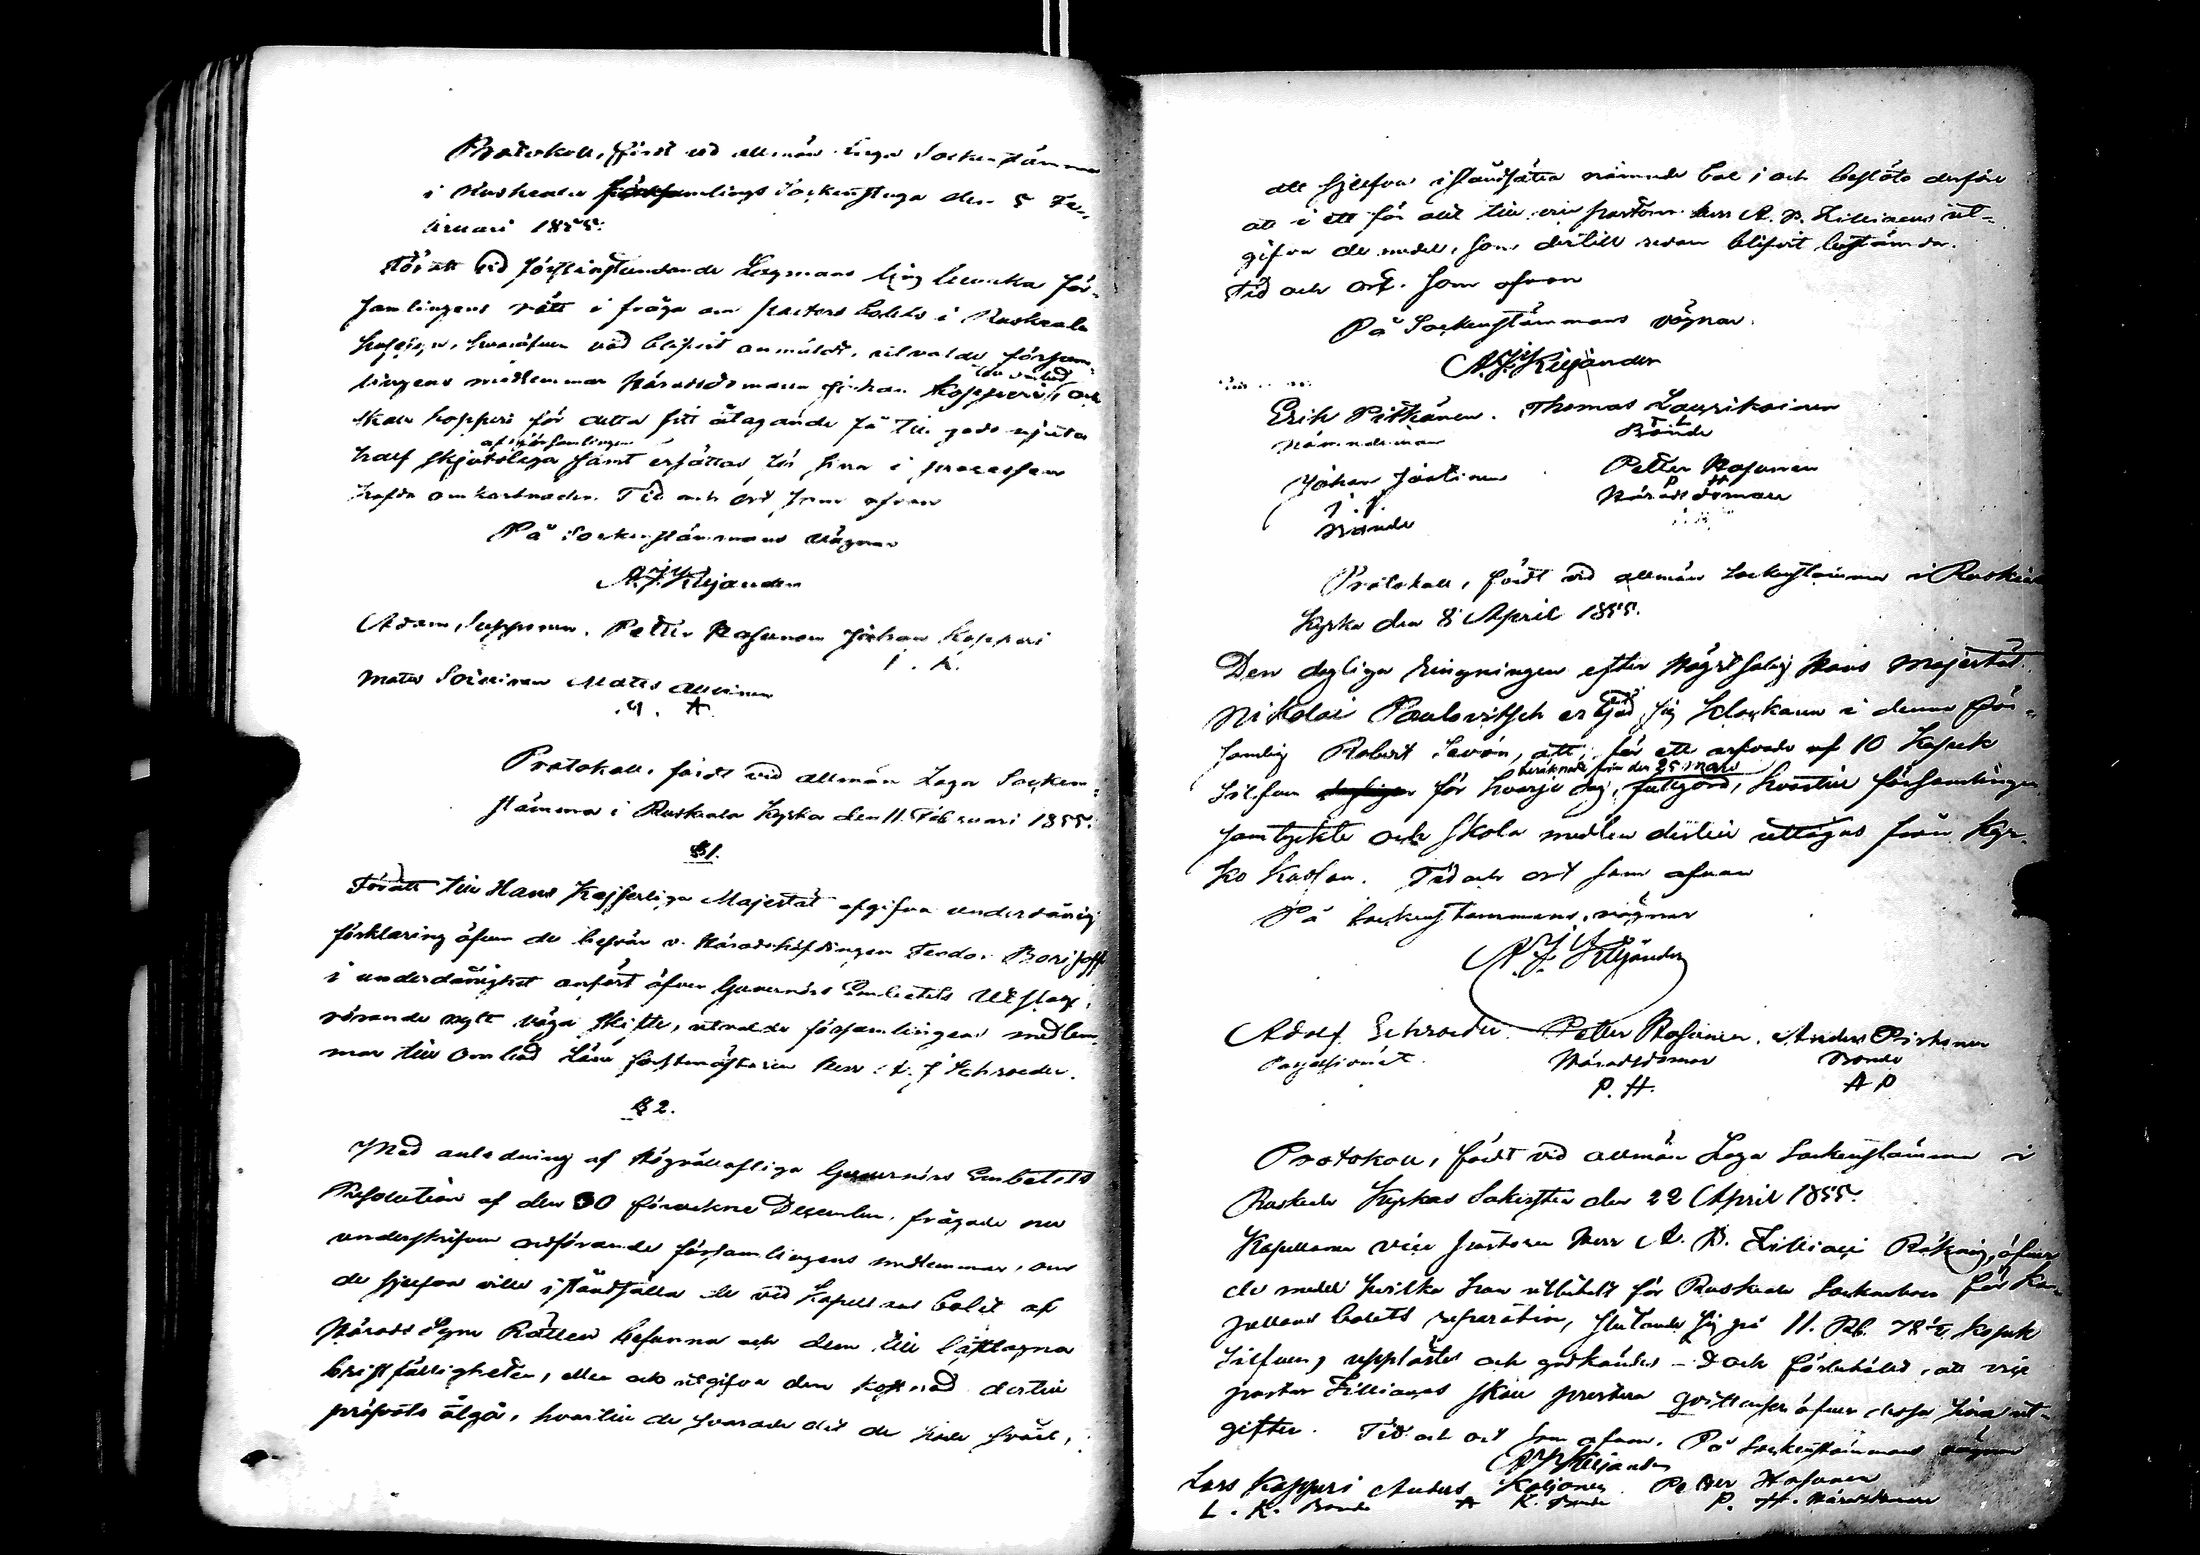 Protokoll, fördt vid allmän laga Sockenstämma
i Ruskeala församlings Sockenstuga den 5 Fe-
bruari 1855.
För att vid förstinstundande Lagmans ting bevaka för-
samlingens rätt i fråga om pastors bolets i Ruskeala
hvaröfver vad blifvit anmäldt, utvalde försam-
lingens medlemmar Häradsdomaren Johan Kopperi, och
skall Kopperi för detta sitt åtagande få till godo njuta
af församlingen
half skjutslega samt ersättas för sina i processen
hafda omkostnader. Tid och ort som ofvan
På Sockenstämmans vägnar
A. J. Kiljander
Adam Papponen. Petter Hasunen Johan Kopperi
I. K.
Mats Soininen Mats
M. A.
Protokoll, fördt vid allmän Laga Socken-
stämma i Ruskeala Kyrka den 11 Februari 1855.
§ 1.
För att till Hans Kejserliga Majestät afgifva underdånig
förklaring öfver de besvär v. Häradshöfdingen Feodor Borisoff
i underdånighet anfört öfver Guvernörs Embetets Utslag,
rörande nytt väga skifte, utvalde församlingens medlem-
mar till ombud Läns forstmästaren Herr A. J. Schroeder.
§ 2.
Med anledning af Högvällofliga Guvernörs Embetets
Resolution af den 30 förvekne December, frågade nu
underskrifven ordförande församlingens medlemmar, om
de sjelfva ville iståndsätta de vid Kapellans bolet af
Härads Syne Rätten befunna och dem till last lagna
bristfälligheter, eller ock utgifva den kostnad dertill
pröfvats åtgå, hvartill de svarade det de hade svårt,
att sjelfva iståndsätta nämnde bol, och beslöto derföre
att i ett för allt till vice pastorn Herr A. B. Zilliacus ut-
gifva de medel, som dertill redan blifvit bestämda.
Tid och ort som ofvan
På Sockenstämmans vägnar.
A. J. Kiljander
Erik Pitkänen. Thomas Laurikainen
Nämndeman Bonde
Johan Jantinen Petter Hasunen
J. J. P H
Bonde Häradsdomare
Protokoll, fördt vid allmän Sockenstämma i Ruskeala
Kyrka den 8 April 1855.
Den dagliga Ringningen efter Högstsalig Hans Majestät
Nikolai Paulovitsch erbjöd sig Klockaren i denna För-
samling Robert Levón, att, för ett arfvode af 10 Kopek
beräknadt från den 25 Mars
Silfver dagligen för hvarje dag, fullgöra, hvartill församlingen
samtyckte och skola medlen dertill uttagas från Kyr-
ko Kassan. Tid och ort som ofvan
På Sockenstämmans vägnar
A. J. Kiljander
Adolf Schroeder. Petter Hasunen. Anders Pirhonen
Possessionat. Häradsdomare Bonde
P. H. A P
Protokoll, fördt vid allmän Laga Sockenstämma i
Ruskeala Kyrkas Sakristia den 22 April 1855.
Kapellanen vice pastoren Herr A. B. Zilliaci Räkning, öfver
de medel hvilka han utbetalt för Ruskeala Sockenboer för Ka-
pellans bolets reparation, slutande sig på 11. Rb. 78 1/2 Kopek
Silfver, upplästes och godkändes – dock förbehölls, att vice
pastor Zilliacus skall prestera qvittenser öfver dessa sina ut-
gifter. Tid och ort som ofvan. På Sockenstämmans vägnar
A. J. Kiljander
Lars Kopperi Anders Koljonen Petter Hasunen
L. K. Bonde A K. Bonde P. H. Häradsdomare